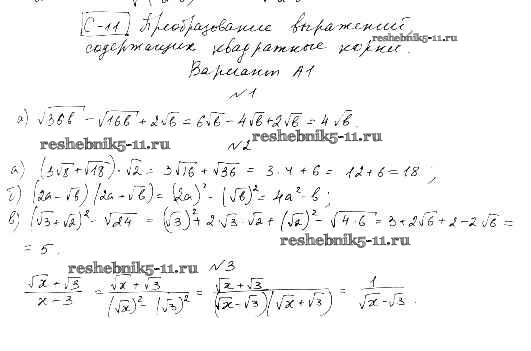 С-11 Преобразование выражений,
содержащих квадратные корни.
reshebnik5-11.ru
Вариант А1
№1
а) √36b - √16b + 2√b = 6√b - 4√b + 2√b = 4√b.
reshebnik5-11.ru
№2
reshebnik5-11.ru
а) (3√8 + √18)·√2 = 3√16 + √36 = 3·4 + 6 = 12 + 6 = 18;
б) (2a - √b)(2a + √b) = (2a)² - (√b)² = 4a² - b;
в) (√3 + √2)² - √24 = (√3)² + 2√3·√2 + (√2)² - √4·6 = 3 + 2√6 + 2 - 2√6 =
= 5.
reshebnik5-11.ru
reshebnik5-11.ru
№3
(√x + √3)/(x - 3) = (√x + √3)/((√x)² - (√3)²) = (√x + √3)/((√x - √3)(√x + √3)) = 1/(√x - √3).